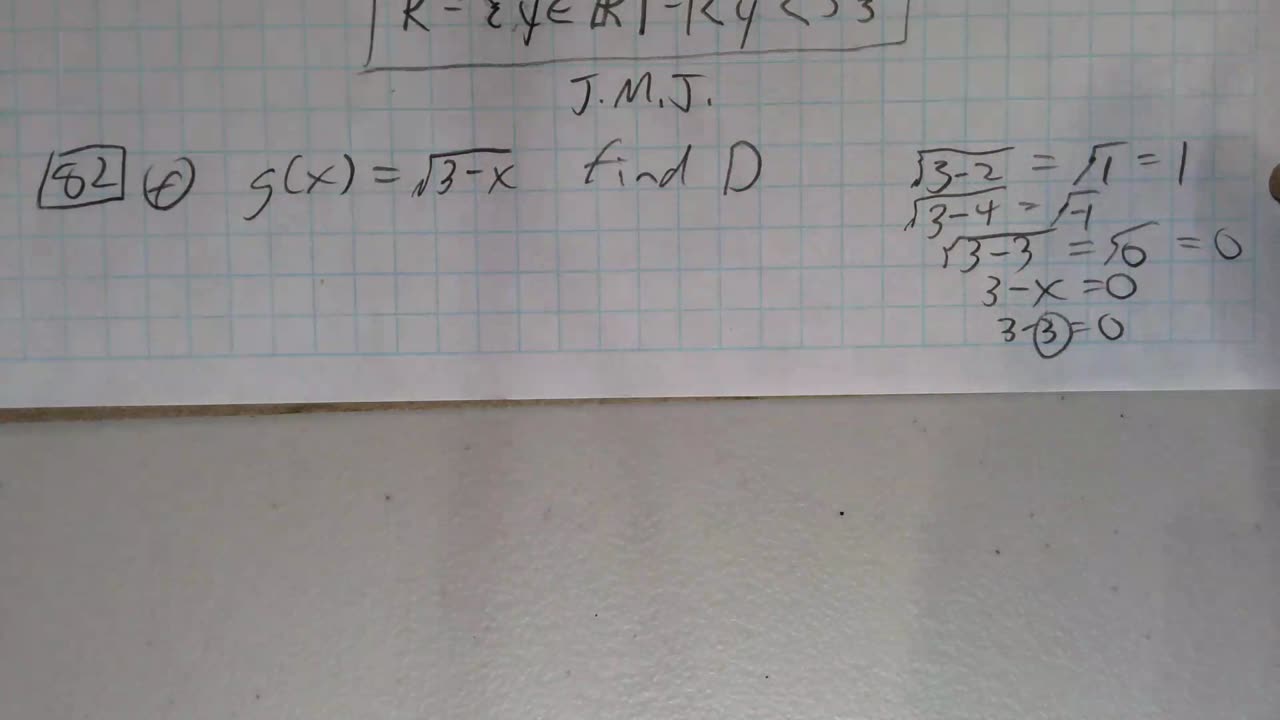 R = {y ∈ ℝ | -1 < y < 
J.M.J.
82 g(x) = √3-x find D
√3-2 = √1 = 1
√3-4 = √-1
√3-3 = √0 = 0
3-x = 0
3-3 = 0